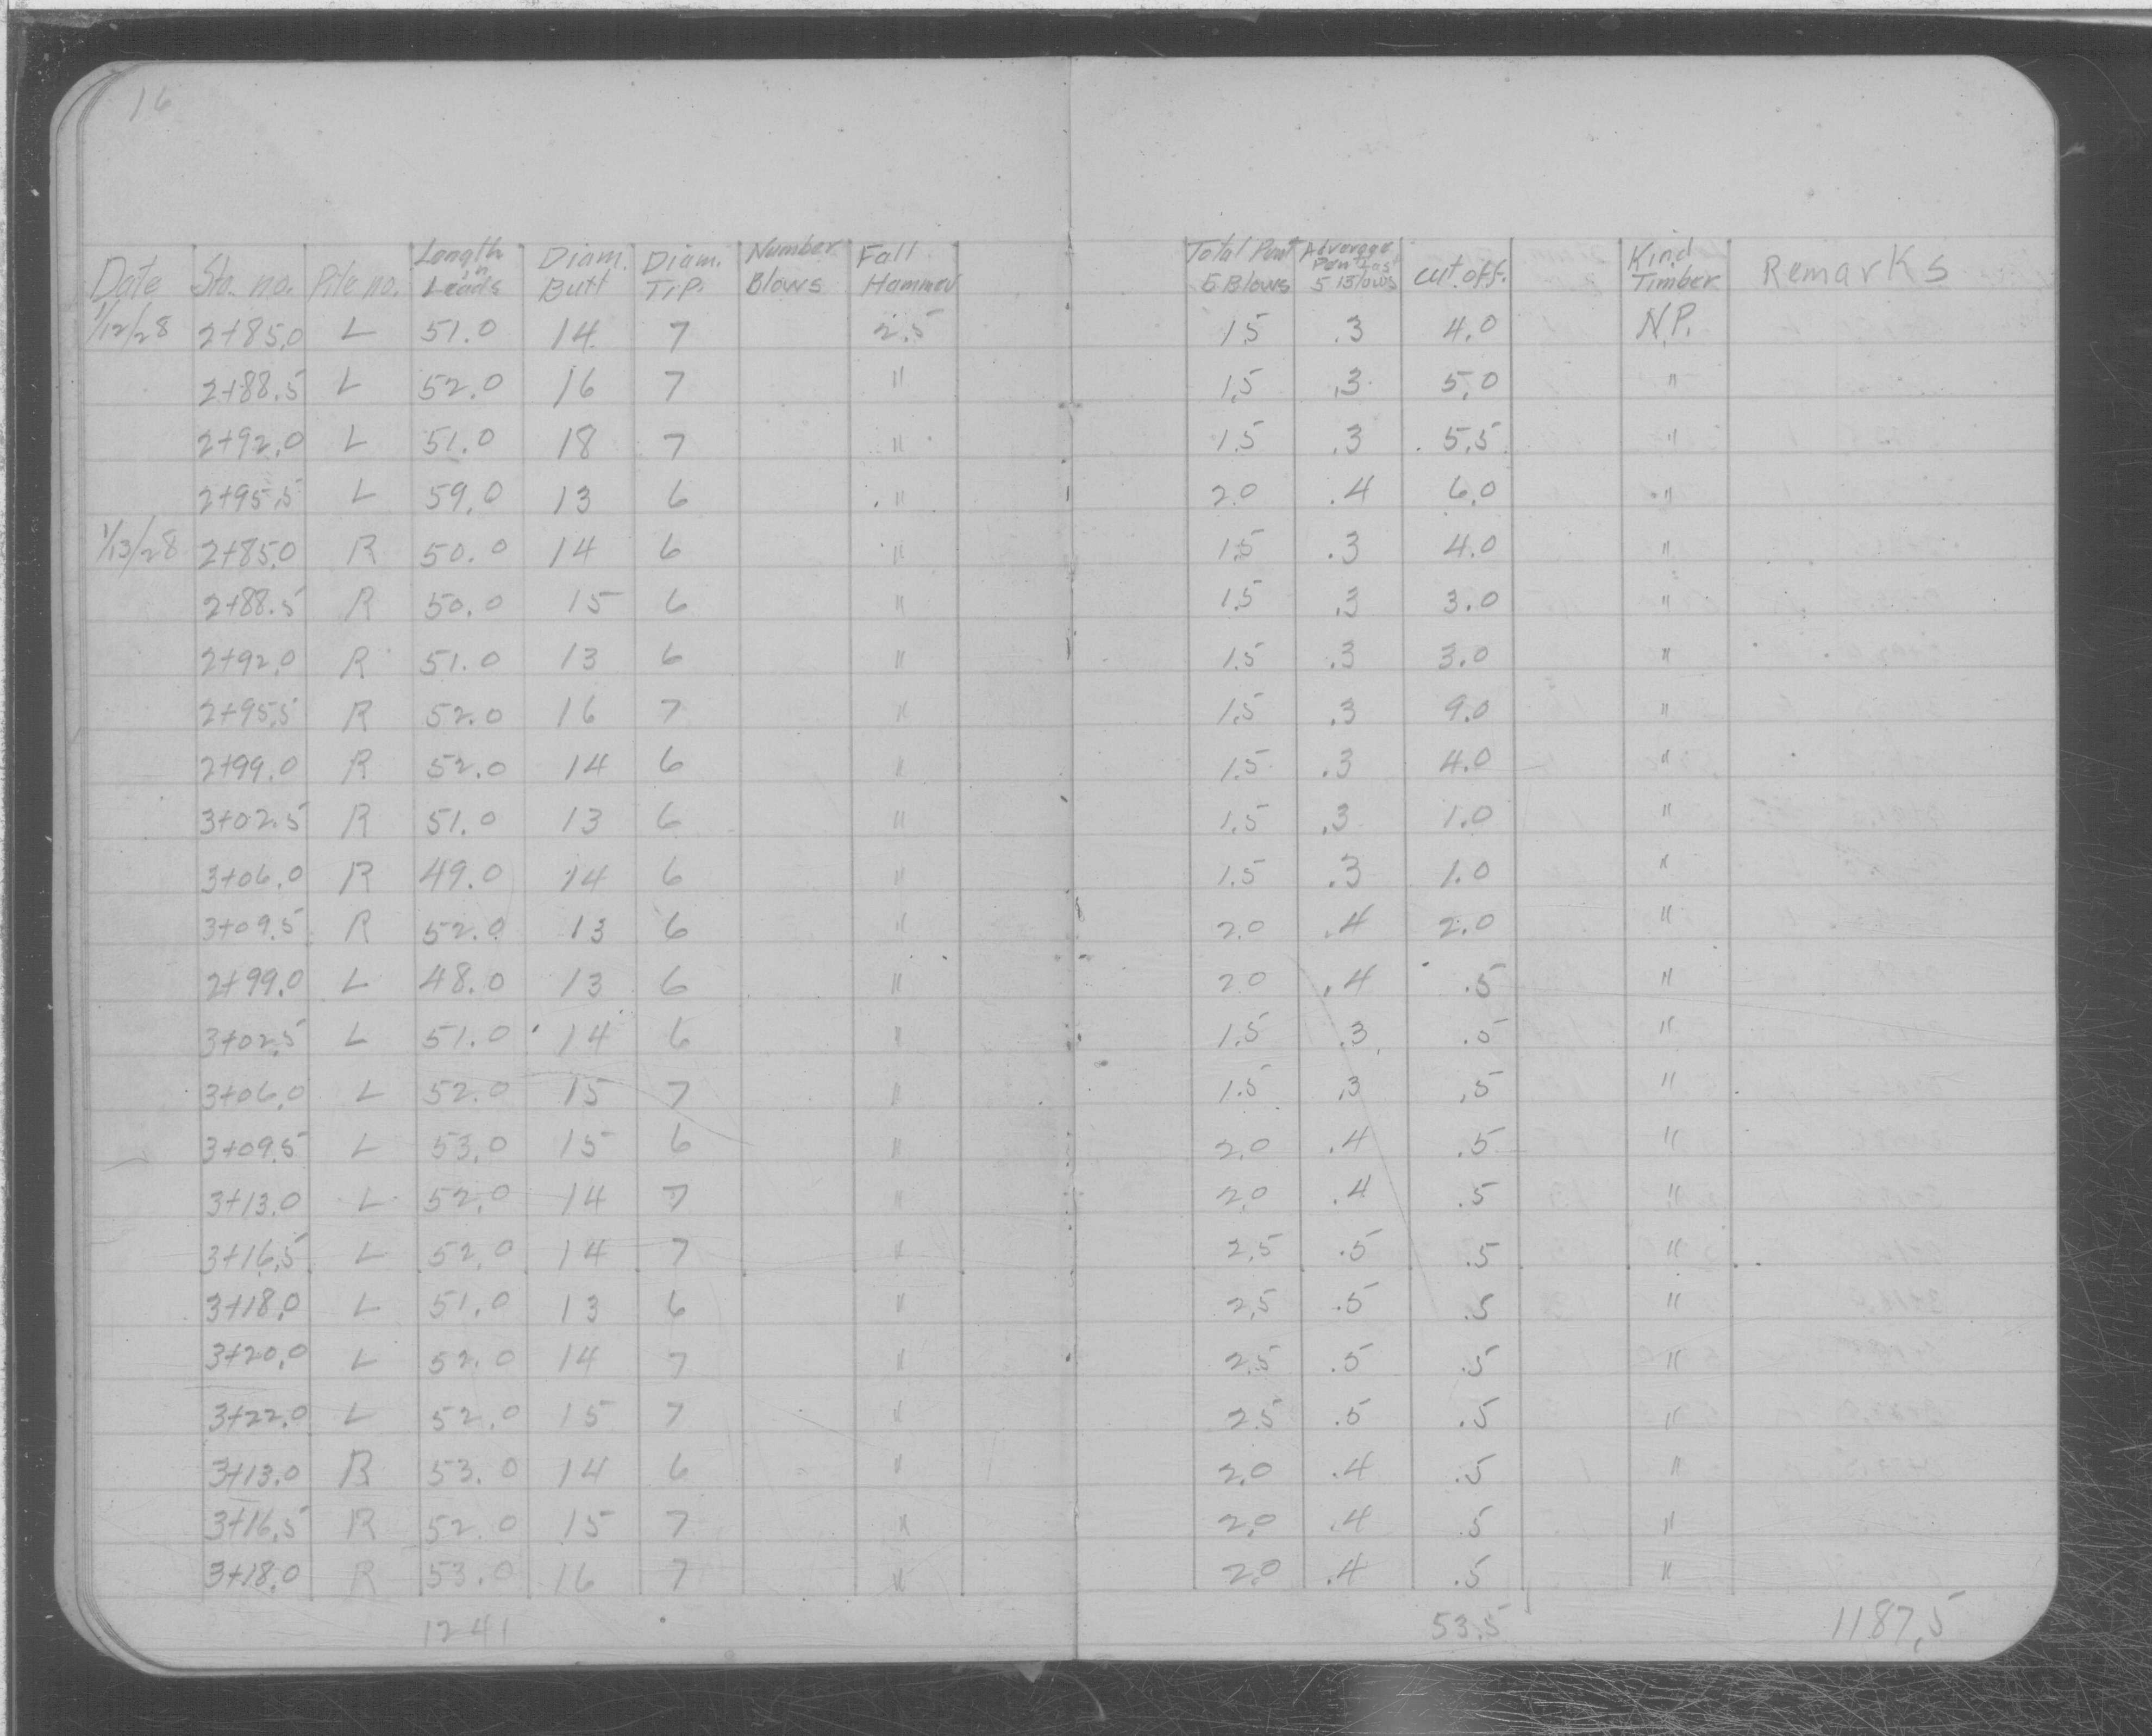 16
Date Sta. no. Pile no. Length in Leads Diam. Butt Diam. Tip. Number Blows Fall Hammer Total Pent 5 Blows Adverage Pent last 5 Blows cut off. Kind Timber Remarks
1/12/28 2+85.0 L 51.0 14 7 2.5 1.5 .3 4.0 N.P.
2+88.5 L 52.0 16 7 " 1.5 .3 5.0 "
2+92.0 L 51.0 18 7 " 1.5 .3 5.5 "
2+95.5 L 59.0 13 6 " 2.0 .4 6.0 "
1/13/28 2+85.0 R 50.0 14 6 " 1.5 .3 4.0 "
2+88.5 R 50.0 15 6 " 1.5 .3 3.0 "
2+92.0 R 51.0 13 6 " 1.5 .3 3.0 "
2+95.5 R 52.0 16 7 " 1.5 .3 9.0 "
2+99.0 R 52.0 14 6 " 1.5 .3 4.0 "
3+02.5 R 51.0 13 6 " 1.5 .3 1.0 "
3+06.0 R 49.0 14 6 " 1.5 .3 1.0 "
3+09.5 R 52.0 13 6 " 2.0 .4 2.0 "
2+99.0 L 48.0 13 6 " 2.0 .4 .5 "
3+02.5 L 51.0 14 6 " 1.5 .3 .5 "
3+06.0 L 52.0 15 7 " 1.5 .3 .5 "
3+09.5 L 53.0 15 6 " 2.0 .4 .5 "
3+13.0 L 52.0 14 7 " 2.0 .4 .5 "
3+16.5 L 52.0 14 7 " 2.5 .5 .5 "
3+18.0 L 51.0 13 6 " 2.5 .5 .5 "
3+20.0 L 52.0 14 7 " 2.5 .5 .5 "
3+22.0 L 52.0 15 7 " 2.5 .5 .5 "
3+13.0 R 53.0 14 6 " 2.0 .4 .5 "
3+16.5 R 52.0 15 7 " 2.0 .4 .5 "
3+18.0 R 53.0 16 7 " 2.0 .4 .5 "
1241 53.5 1187.5